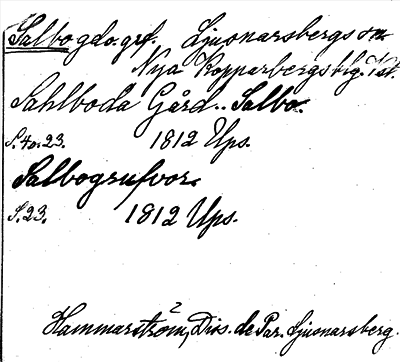 Salbo gdo. grf. Ljusnarsbergs sn
Nya Kopparbergs blg. Vst.
Sahlboda Gård.. Salbo.
S. 40. 23. 1812 Ups.
Salbogrufvor.
S. 23. 1812 Ups.
Hammarström, Diss. de Par. Ljusnarsberg.